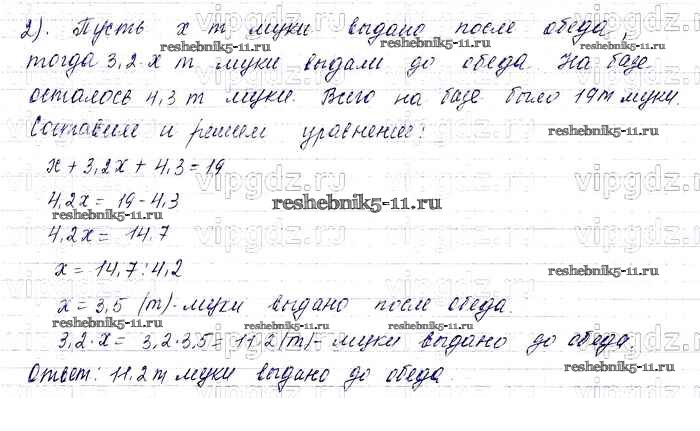 2). Пусть x т муки выдано после обеда,
тогда 3,2·x т муки выдали до обеда. На базе
осталось 4,3 т муки. Всего на базе было 19т муки.
Составим и решим уравнение:
x + 3,2x + 4,3 = 19
4,2x = 19 - 4,3
4,2x = 14,7
x = 14,7 : 4,2
x = 3,5 (т) - муки выдано после обеда.
3,2·x = 3,2·3,5 = 11,2 (т) - муки выдано до обеда.
Ответ: 11,2 т муки выдано до обеда.
vipgdz.ru
reshebnik5-11.ru